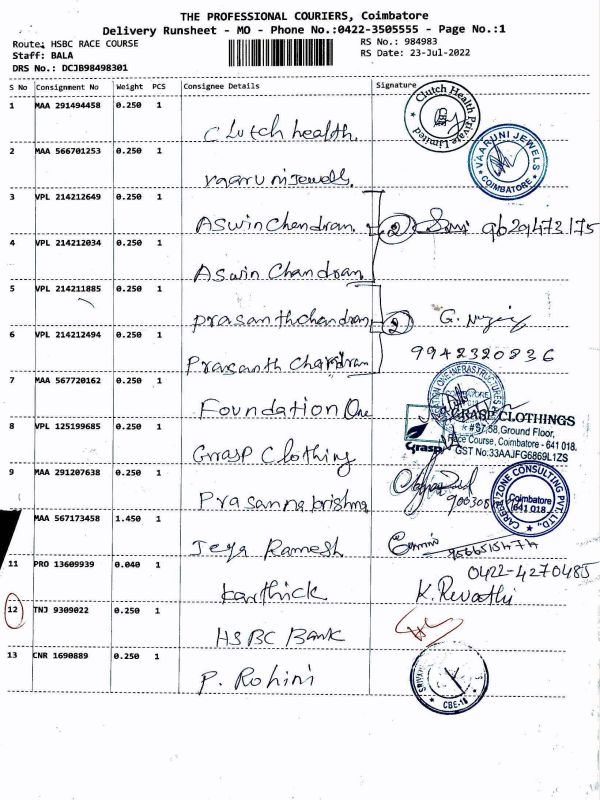 THE PROFESSIONAL COURIERS, Coimbatore
Delivery Runsheet - MO - Phone No.:0422-3505555 - Page No.:1
Route: HSBC RACE COURSE RS No.: 984983
Staff: BALA RS Date: 23-Jul-2022
DRS No.: DCJB98498301
S No Consignment No Weight PCS Consignee Details Signature
1 MAA 291494458 0.250 1
Clutch health
Clutch Health Private Limited
2 MAA 566701253 0.250 1
vaaruni jewells
VAARUNI JEWELS
COIMBATORE
3 VPL 214212649 0.250 1
Aswin Chandran 2 9629473175
4 VPL 214212034 0.250 1
Aswin Chandran
5 VPL 214211885 0.250 1
prasanthchandran 2 G.
6 VPL 214212494 0.250 1
Prasanth Chandran 9942320836
7 MAA 567720162 0.250 1
Foundation One
8 VPL 125199685 0.250 1
GRASP CLOTHINGS
#97,58, Ground Floor,
Race Course, Coimbatore - 641 018.
GST No:33AAJFG6869L1ZS
Grasp
Grasp Clothing
9 MAA 291207638 0.250 1
Prasanna krishna
CAREERZONE CONSULTING PVT. LTD.
Coimbatore
641 018
MAA 567173458 1.450 1
Jeya Ramesh
11 PRO 13609939 0.040 1 0422-4270485
karthick K. Revathi
12 TNJ 9309022 0.250 1
HSBC Bank
13 CNR 1690889 0.250 1
P. Rohini
CBE-18